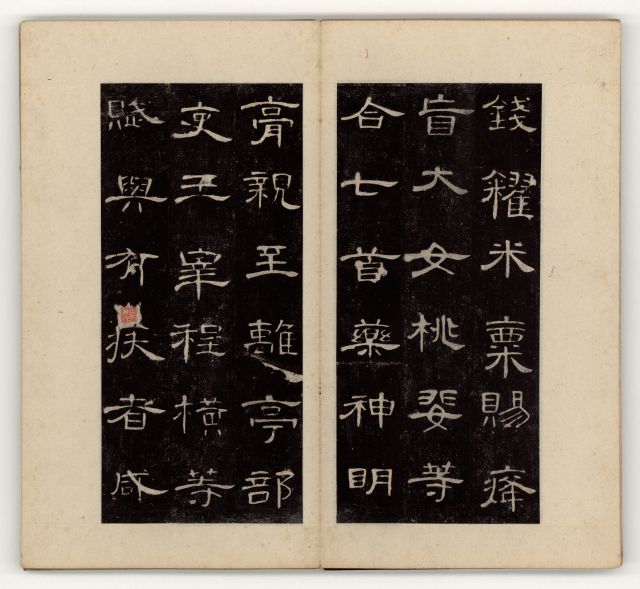 錢糴米粟賜癃
盲大女桃婓等
合七首藥神明
膏親至離亭部
吏王宰程橫等
賦與有疾者咸